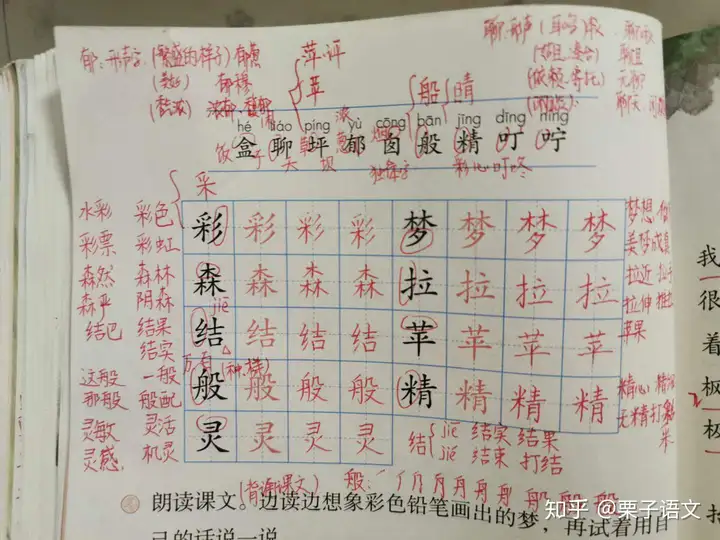 郁:形声字 (繁盛的样子) 郁葱
(美好) 郁穆
萍·评
苹
船
晴
聊:形声 (耳鸣)
聊天
hé liáo píng yù cōng bān jīng dīng níng
盒 聊 坪 郁 囱 般 精 叮 咛
饭 子
独体字
采
水彩 彩色
彩票 彩虹
森然 森林
森严 阴森
结巴 结果
结实
这般 一般
那般 般配
灵敏 灵活
灵感 机灵
jiē
(种、样)
彩 彩 彩 彩 梦 梦 梦 梦
森 森 森 森 拉 拉 拉 拉
结 结 结 结 苹 苹 苹 苹
般 般 般 般 精 精 精 精
灵 灵 灵 灵
梦想
美梦成真
拉近
拉伸
苹果
精心
无精打采
结 jiē 结实 结果
jié 结束 打结
(背诵课文)
般:
朗读课文。边读边想象彩色铅笔画出的梦,再试着用自
己的话说一说
我
很
着
极
极
知乎 @栗子语文